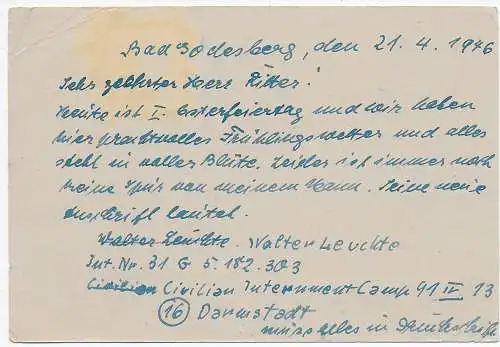 Bad Godesberg, den 21. 4. 1946
Sehr geehrter Herr Ritter!
Heute ist I. Osterfeiertag und wir haben
hier prachtvolles Frühlingswetter und alles
steht in voller Blüte. Leider ist immer noch
keine Spur von meinem Mann. Seine neue
Anschrift lautet.
Walter Leuchte. Walter Leuchte
Int. Nr. 31 G 5. 182. 303
Civilian Civilian Internment Camp 91 IV 13
16 Darmstadt
muss alles in Druckschrift